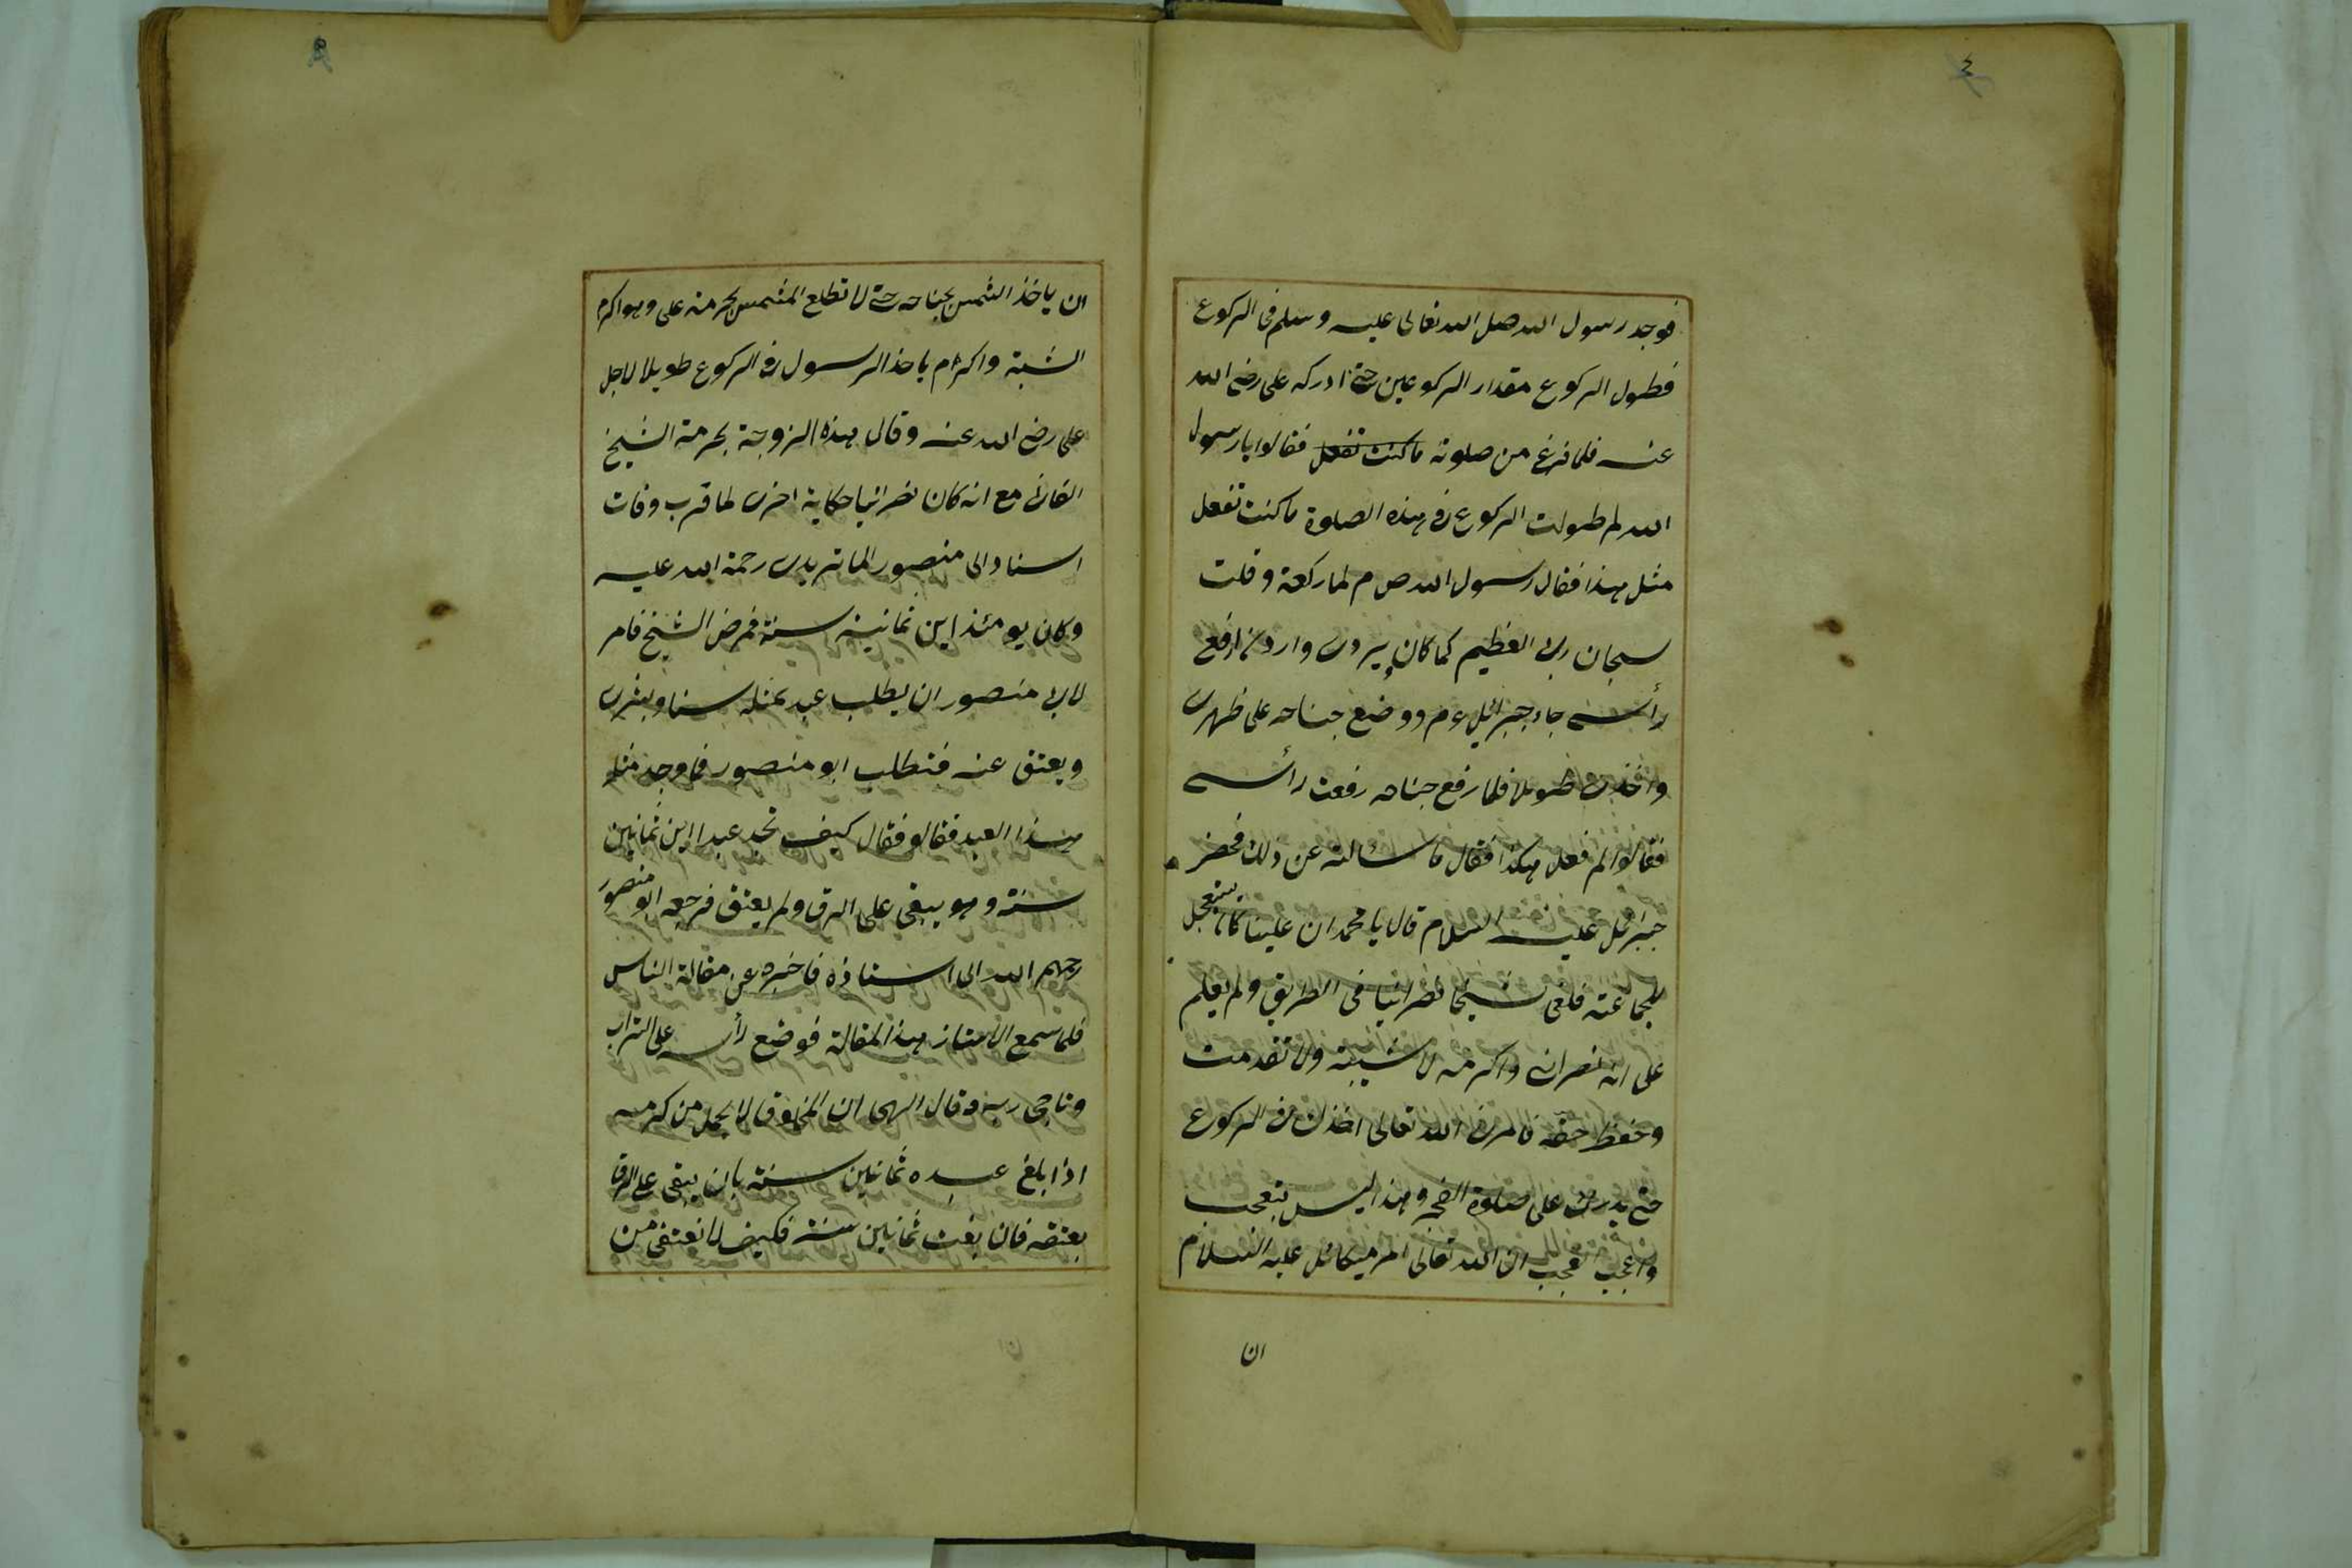 ٤
فوجد رسول الله صلى الله تعالى عليه وسلم فى الركوع
فطول الركوع مقدار الركوعين حتى ادركه على رضى الله
عنه فلما فرغ من صلوته ما كنت تفعل فقالوا يا رسول
الله لم طولت الركوع فى هذه الصلوة ما كنت تفعل
مثل هذا فقال رسول الله ص م لما ركعة وقلت
سبحان ربى العظيم كما كان يروى واردت ارفع
رأسى جاء جبرائيل ع م ووضع جناحه على ظهرى
واخذنى طويلا فلما رفع جناحه رفعت رأسى
فقالوا لم فعل هكذا فقال ما سئالته عن ذلك فحضر
جبرائل عليه السلام قال يا محمد ان علينا كان يستعجل
للجماعته فلقى شيخا نصرانيا فى الطريق ولم يعلم
على انه نصرانى واكرمه لاشيبته ولا تقدمت
وحفظ حقه فامرنى الله تعالى اخذك فى الركوع
حتى يدرك على صلوة الفجر وهذا ليس بتعجب
واعجب العجب ان الله تعالى امر ميكائل عليه السلام
ان
٥
ان ياخذ الشمس بجناحه حتى لا تطلع الشمس لحرمته على وهو اكرم
الشبة واكرام ياخذ الرسول فى الركوع طويلا لاجل
على رضى الله عنه وقال هذه الزوجة بحرمة الشيخ
الفانى مع انه كان نصرانيا حكاية اخرى لما قرب وفات
استاد الى منصور الماتريدى رحمة الله عليه
وكان يومئذ ابن ثمانين سنة فمرض الشيخ فامر
لابى منصور ان يطلب عبد بمثله سنا ويشرى
ويعتق عنه فتطلب ابو منصور فما وجد مثله
هذا العبد فقالو فقال كيف تجد عبدا ابن ثمانين
سنة وهو يبقى على الرق ولم يعتق فرجعه ابو منصور
رحمهم الله الى استاذه فاخبره عن مقالة الناس
فلما سمع الاستاذ هذا المقالة فوضع رأسه على التراب
وناجى ربه وقال الهى ان المخلوق لا يحمل من كرمه
اذا بلغ عبده ثمانين سنة بان يبقى على الرقا
بعتقه فان بلغت ثمانين سنة فكيف لا تعتقنى من